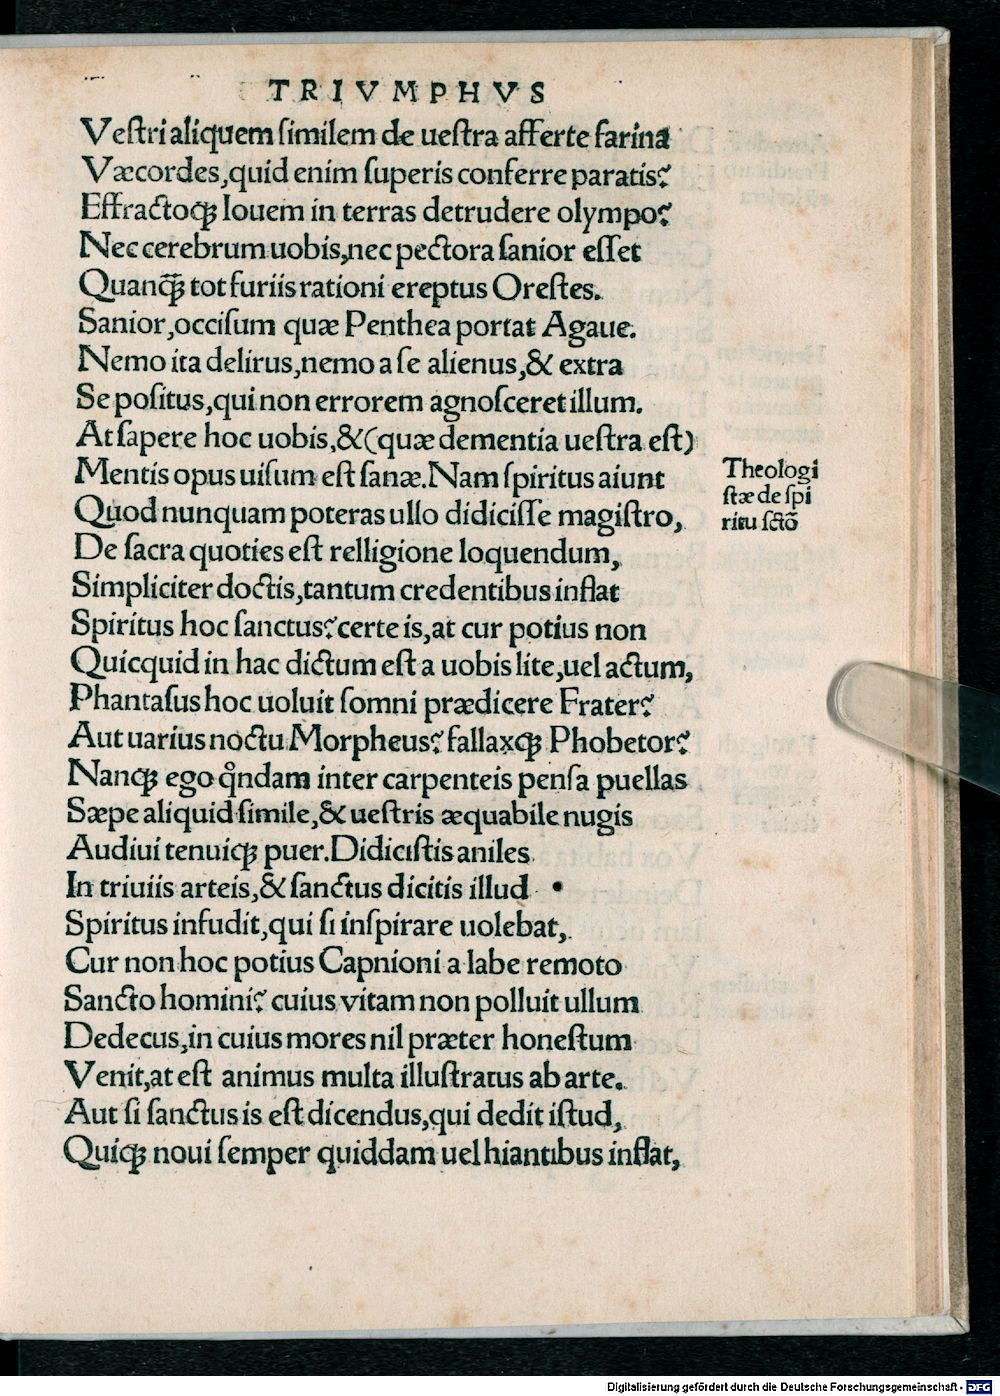 TRIVMPHVS
Veſtri aliquem ſimilem de ueſtra afferte farina
Væcordes,quid enim ſuperis conferre paratis?
Effractoq; Iouem in terras detrudere olympo?
Nec cerebrum uobis,nec pectora ſanior eſſet
Quanq̃ tot furiis rationi ereptus Oreſtes.
Sanior,occiſum quæ Penthea portat Agaue.
Nemo ita delirus,nemo a ſe alienus,& extra
Se poſitus,qui non errorem agnoſceret illum.
At ſapere hoc uobis,&(quæ dementia ueſtra eſt)
Mentis opus uiſum eſt ſanæ.Nam ſpiritus aiunt
Quod nunquam poteras ullo didiciſſe magiſtro,
De ſacra quoties eſt relligione loquendum,
Simpliciter doctis,tantum credentibus inflat
Spiritus hoc ſanctus?certe is,at cur potius non
Quicquid in hac dictum eſt a uobis lite,uel actum,
Phantaſus hoc uoluit ſomni prædicere Frater?
Aut uarius noctu Morpheus? fallaxq; Phobetor?
Nanq; ego qͦndam inter carpenteis penſa puellas
Sæpe aliquid ſimile,& ueſtris æquabile nugis
Audiui tenuiq; puer.Didiciſtis aniles
In triuiis arteis,& ſanctus dicitis illud
Spiritus infudit,qui ſi inſpirare uolebat,
Cur non hoc potius Capnioni a labe remoto
Sancto homini? cuius vitam non polluit ullum
Dedecus,in cuius mores nil præter honeſtum
Venit,at eſt animus multa illuſtratus ab arte.
Aut ſi ſanctus is eſt dicendus,qui dedit iſtud,
Quiq; noui ſemper quiddam uel hiantibus inflat,
Theologi
ſtæ de ſpi
ritu ſctõ
Digitalisierung gefördert durch die Deutsche Forschungsgemeinschaft - DFG